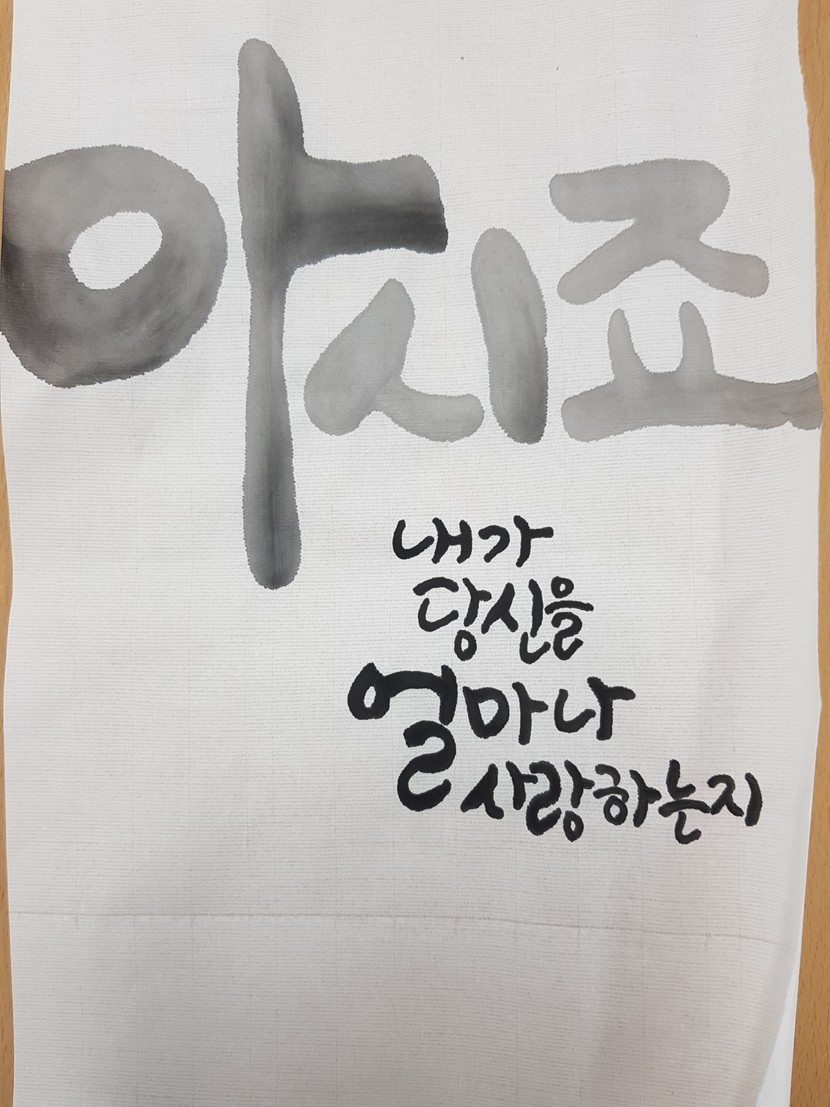 아시죠
내가
당신을
얼마나
사랑하는지